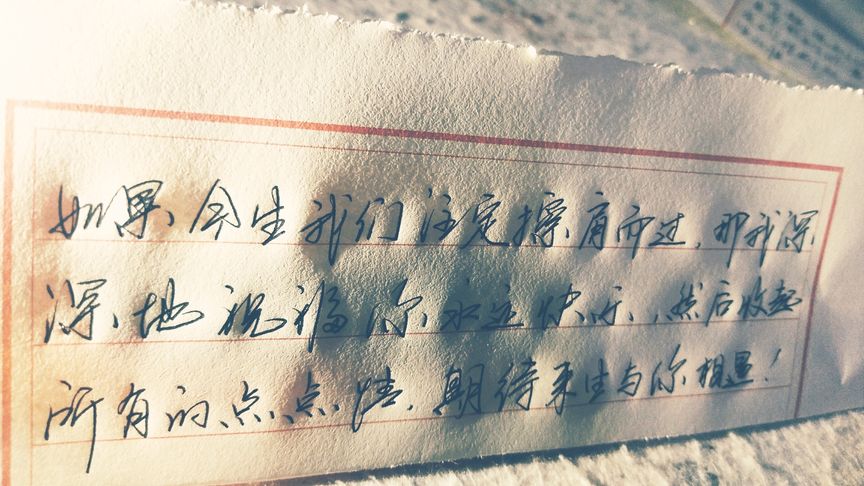 如果今生我们注定擦肩而过,那我深
深地祝福你永远快乐,然后收起
所有的点点情,期待来生与你相遇!